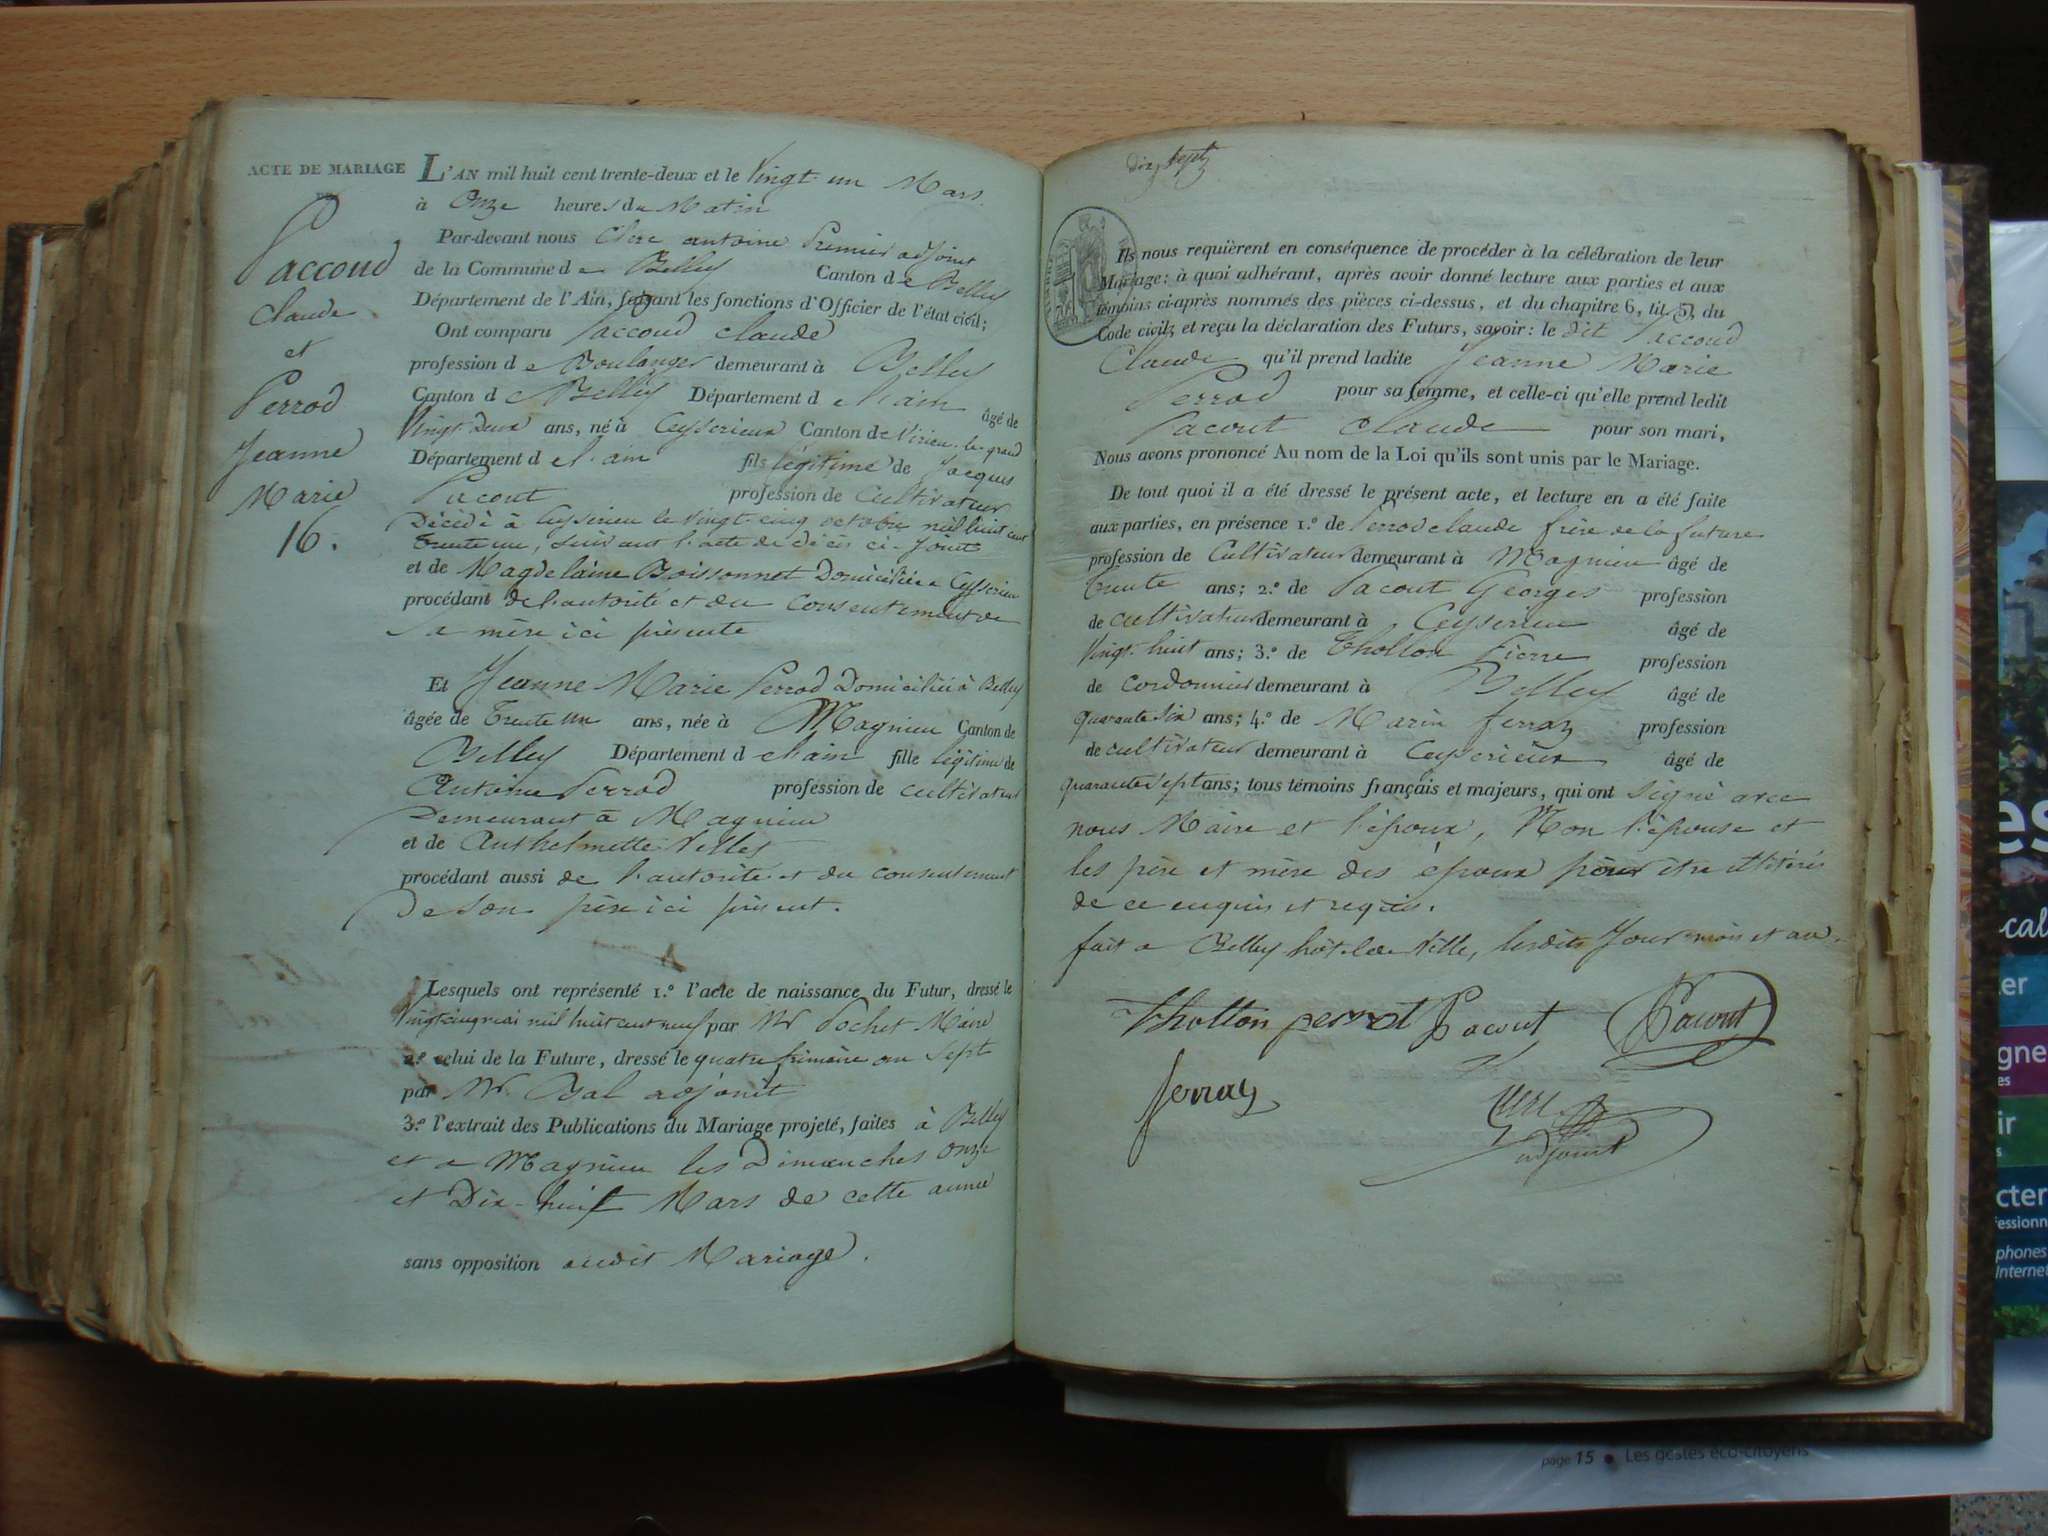 ACTE DE MARIAGE
DE
Paccoud
Claude
et
Perrod
Jeanne
Marie
16.
L'AN mil huit cent trente-deux et le Vingt-un Mars
à Onze heures du Matin
Par-devant nous Clerc antoine Premier adjoint
de la Commune de Belley Canton de Belley
Département de l'Ain, faisant les fonctions d'Officier de l'état civil;
Ont comparu Paccoud Claude
profession de Boulanger demeurant à Belley
Canton de Belley Département de l'ain âgé de
Vingt-Deux ans, né à Ceyserieux Canton de Virieu-le-grand
Département de l'ain fils légitime de Jacques
Pacout profession de Cultivateur
Décédé à Ceyserieu le vingt-cinq octobre mil huit cent
Trente un, suivant l'acte de décès ci-joint
et de Magdelaine Boissonnet Domiciliée a Ceyserieu
procédant de l'autorité et du Consentement de
Sa mère ici présente
Et Jeanne Marie Perrod Domiciliée à Belley
âgée de Trente un ans, née à Magnieu Canton de
Belley Département de l'ain fille légitime de
Antoine Perrod profession de cultivateur
Demeurant à Magnieu
et de Anthelmette Vellet
procédant aussi de l'autorité et du consentement
De son père ici présent.
Lesquels ont représenté 1.º l'acte de naissance du Futur, dressé le
Vingt cinq mai mil huit cent neuf par Mr Pochet Maire
2.º celui de la Future, dressé le quatre frimaire an Sept
par Mr. Bal adjoint
3.º l'extrait des Publications du Mariage projeté, faites à Belley
et a Magnieu les Dimanches Onze
et Dix-huit Mars de cette année
sans opposition audit Mariage.
Dix sept
Ils nous requièrent en conséquence de procéder à la célébration de leur
Mariage: à quoi adhérant, après avoir donné lecture aux parties et aux
témoins ci-après nommés des pièces ci-dessus, et du chapitre 6, tit. 5, du
Code civil, et reçu la déclaration des Futurs, savoir: le dit Paccoud
Claude qu'il prend ladite Jeanne Marie
Perrod pour sa femme, et celle-ci qu'elle prend ledit
Pacout Claude pour son mari,
Nous avons prononcé Au nom de la Loi qu'ils sont unis par le Mariage.
De tout quoi il a été dressé le présent acte, et lecture en a été faite
aux parties, en présence 1.º de Perrod claude frère de la future
profession de Cultivateur demeurant à Magnieu âgé de
Trente ans; 2.º de Pacout Georges profession
de cultivateur demeurant à Ceyserieu âgé de
Vingt-huit ans; 3.º de Thollon Pierre profession
de cordonnier demeurant à Belley âgé de
quarante six ans; 4.º de Marin ferraz profession
de cultivateur demeurant à Ceyserieux âgé de
quarante sept ans; tous témoins français et majeurs, qui ont signé avec
nous Maire et l'époux, Non l'épouse et
les père et mère des époux pour être illitérés
de ce enquis et requis.
fait a Belley hôtel de Ville, lesdits Jour mois et an.
Thollon perrot Pacout Pacout
ferraz
Clerc
adjoint
er
gne
es
ir
s
cter
Internet
page 15 • Les gestes éco-citoyens